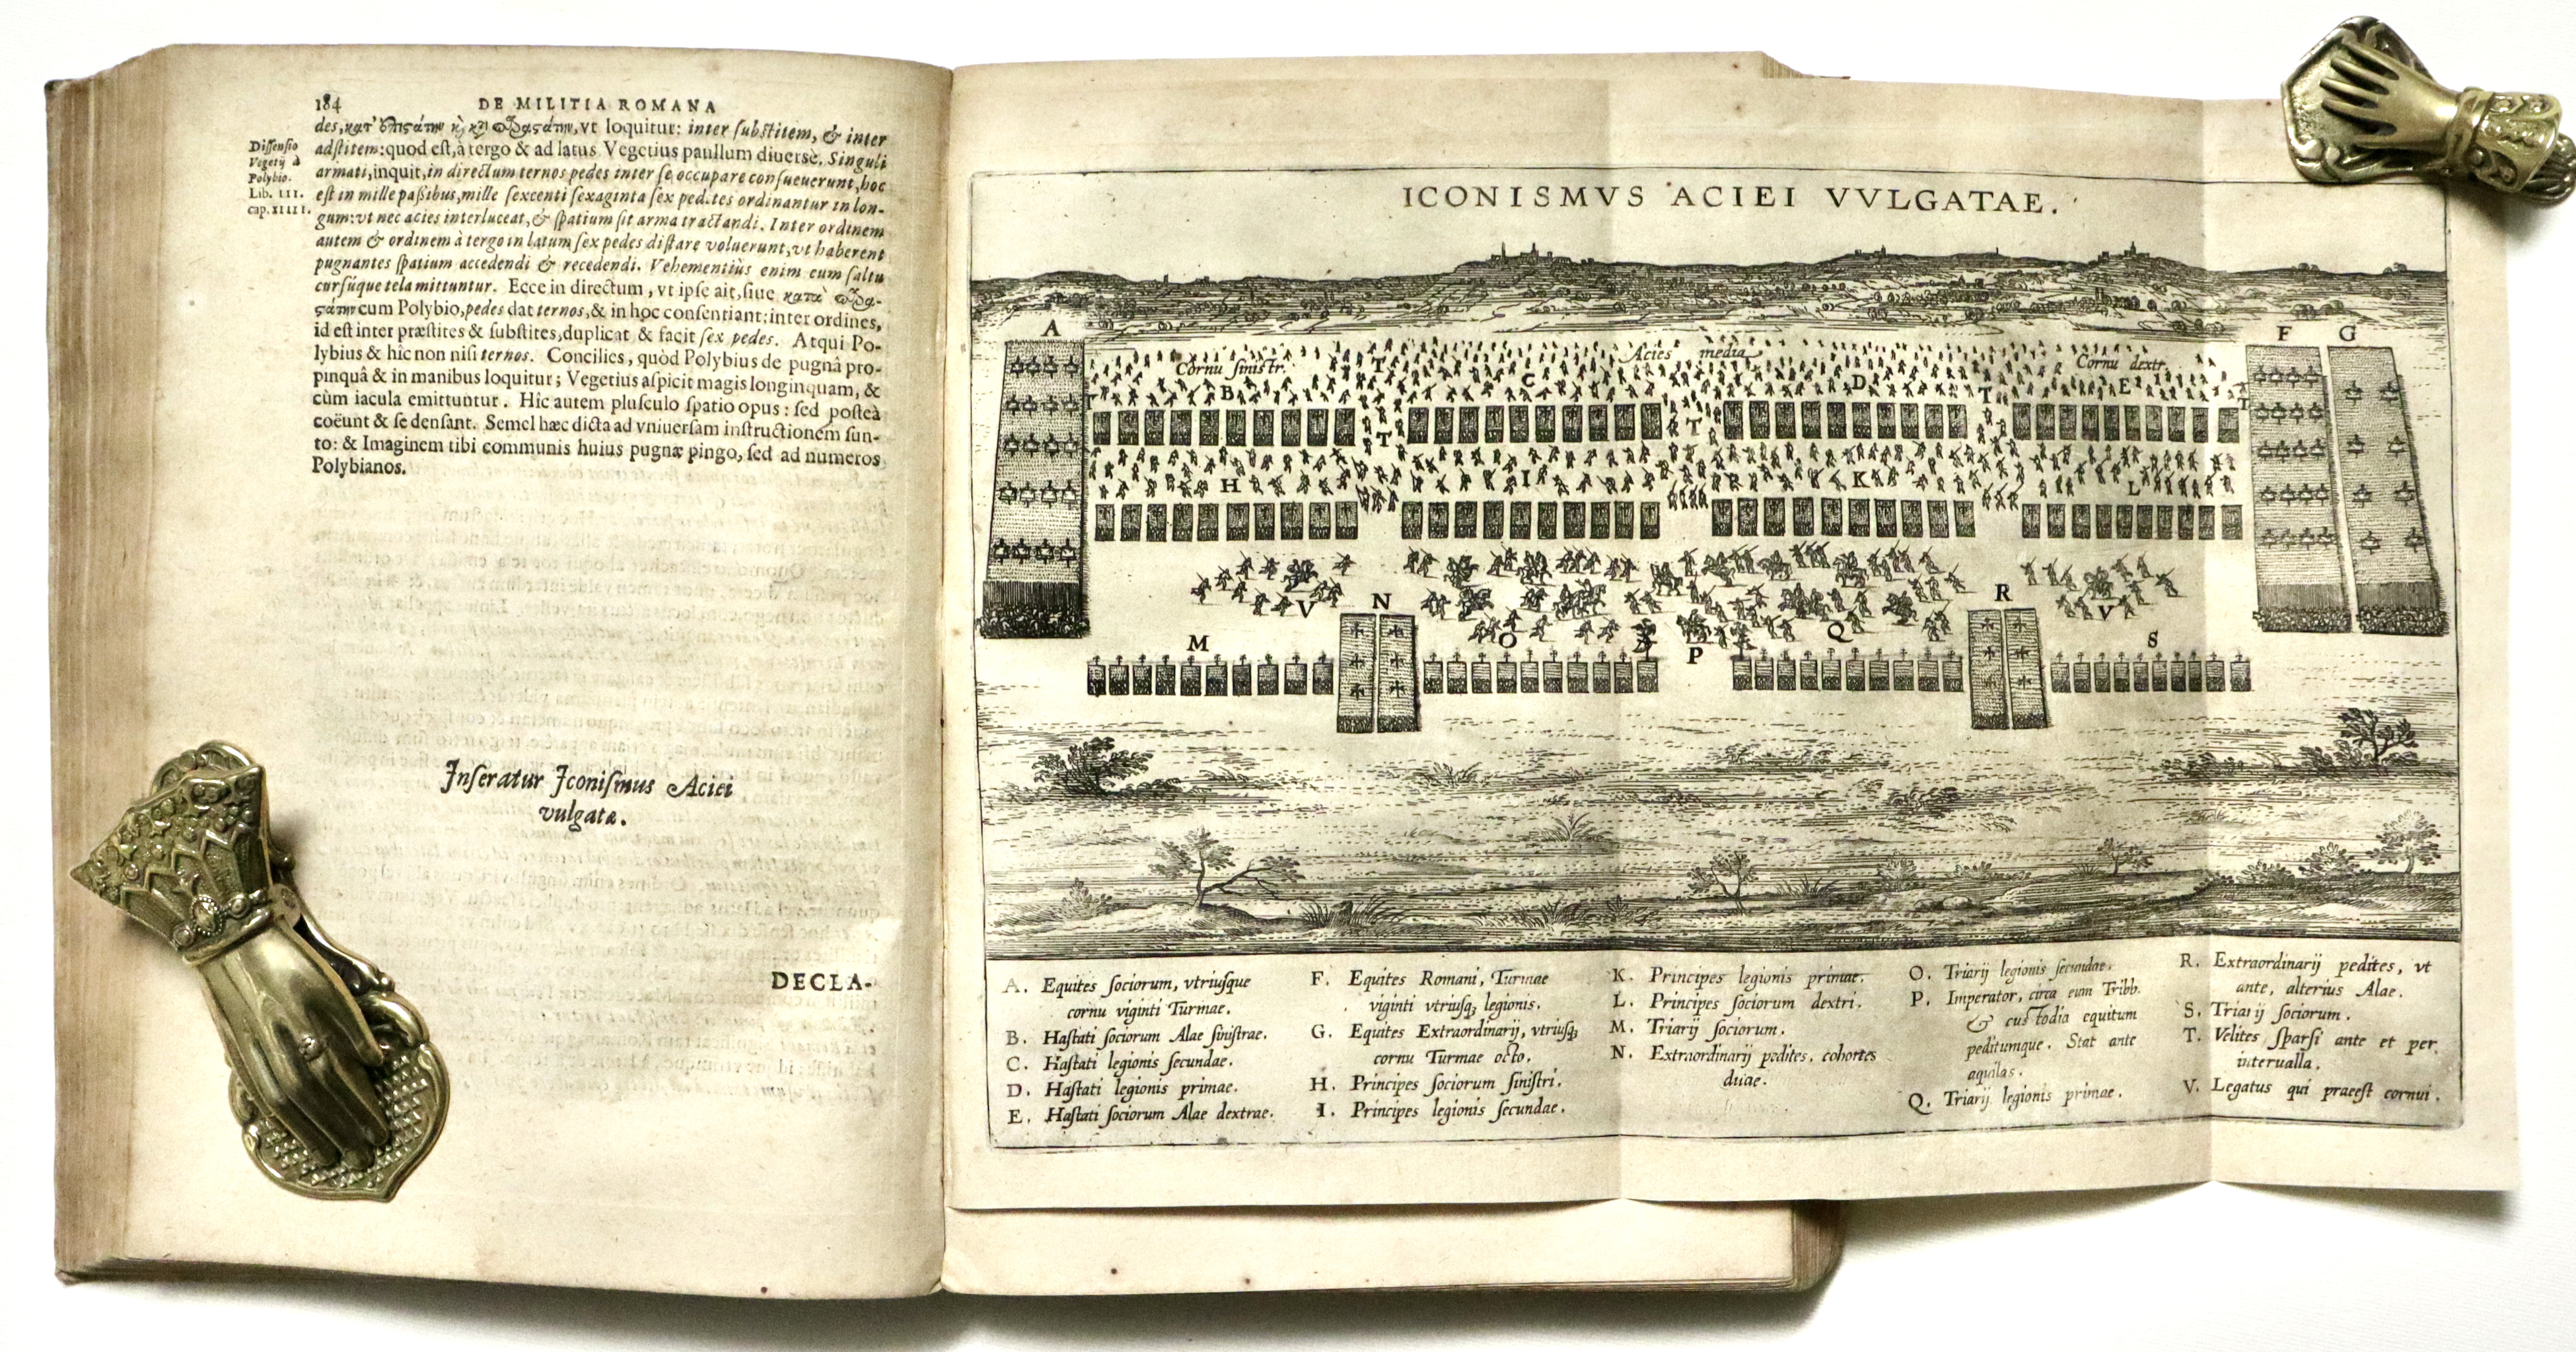 184
DE MILITIA ROMANA
des, κατ' ἐπιστάτην κὶ κτ παραστάτην, vt loquitur: inter ſubſtitem, & inter
adſtitem: quod eſt, à tergo & ad latus. Vegetius paullum diuersè. Singuli
armati, inquit, in directum ternos pedes inter ſe occupare conſueuerunt, hoc
eſt in mille paßibus, mille ſexcenti ſexaginta ſex pedites ordinantur in lon-
gum: vt nec acies interluceat, & ſpatium ſit arma tractandi. Inter ordinem
autem & ordinem à tergo in latum ſex pedes diſtare voluerunt, vt haberent
pugnantes ſpatium accedendi & recedendi. Vehementiùs enim cum ſaltu
curſúque tela mittuntur. Ecce in directum, vt ipſe ait, ſiue κατὰ παρα-
στάτην cum Polybio, pedes dat ternos, & in hoc conſentiant: inter ordines,
id eſt inter præſtites & ſubſtites, duplicat & facit ſex pedes. Atqui Po-
lybius & hîc non niſi ternos. Concilies, quòd Polybius de pugnâ pro-
pinquâ & in manibus loquitur; Vegetius aſpicit magis longinquam, &
cùm iacula emittuntur. Hîc autem pluſculo ſpatio opus: ſed poſteà
coëunt & ſe denſant. Semel hæc dicta ad vniuerſam inſtructionem ſun-
to: & Imaginem tibi communis huius pugnæ pingo, ſed ad numeros
Polybianos.
Diſſenſio
Vegetij à
Polybio.
Lib. III.
cap. XIIII.
Inſeratur Iconiſmus Aciei
vulgatæ.
DECLA-
ICONISMVS ACIEI VVLGATAE.
A
F
G
Cornu ſiniſtr.
Acies media
Cornu dextr.
T
T
T
T
B
C
D
E
T
T
H
I
K
L
V
N
R
V
M
O
P
Q
S
A. Equites ſociorum, vtriuſque
cornu viginti Turmae.
B. Haſtati ſociorum Alae ſiniſtrae.
C. Haſtati legionis ſecundae.
D. Haſtati legionis primae.
E. Haſtati ſociorum Alae dextrae.
F. Equites Romani, Turmae
viginti vtriuſq; legionis.
G. Equites Extraordinarij, vtriuſq;
cornu Turmae octo.
H. Principes ſociorum ſiniſtri.
I. Principes legionis ſecundae.
K. Principes legionis primae.
L. Principes ſociorum dextri.
M. Triarij ſociorum.
N. Extraordinarij pedites, cohortes
duae.
O. Triarij legionis ſecundae.
P. Imperator, circa eum Tribb.
& cuſtodia equitum
peditumque. Stat ante
aquilas.
Q. Triarij legionis primae.
R. Extraordinarij pedites, vt
ante, alterius Alae.
S. Triarij ſociorum.
T. Velites ſparſi ante et per
interualla.
V. Legatus qui praeeſt cornui.